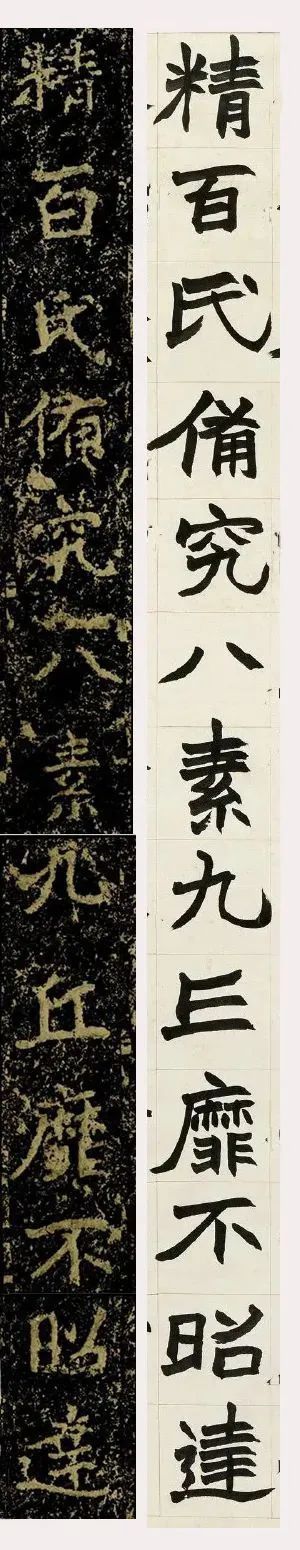 精百氏備究八素九丘靡不昭達
精百氏備究八素九丘靡不昭達